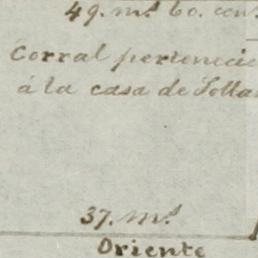 49. m.s 60. cen
Corral pertenecie
á la casa de Solla
37. m.s
Oriente